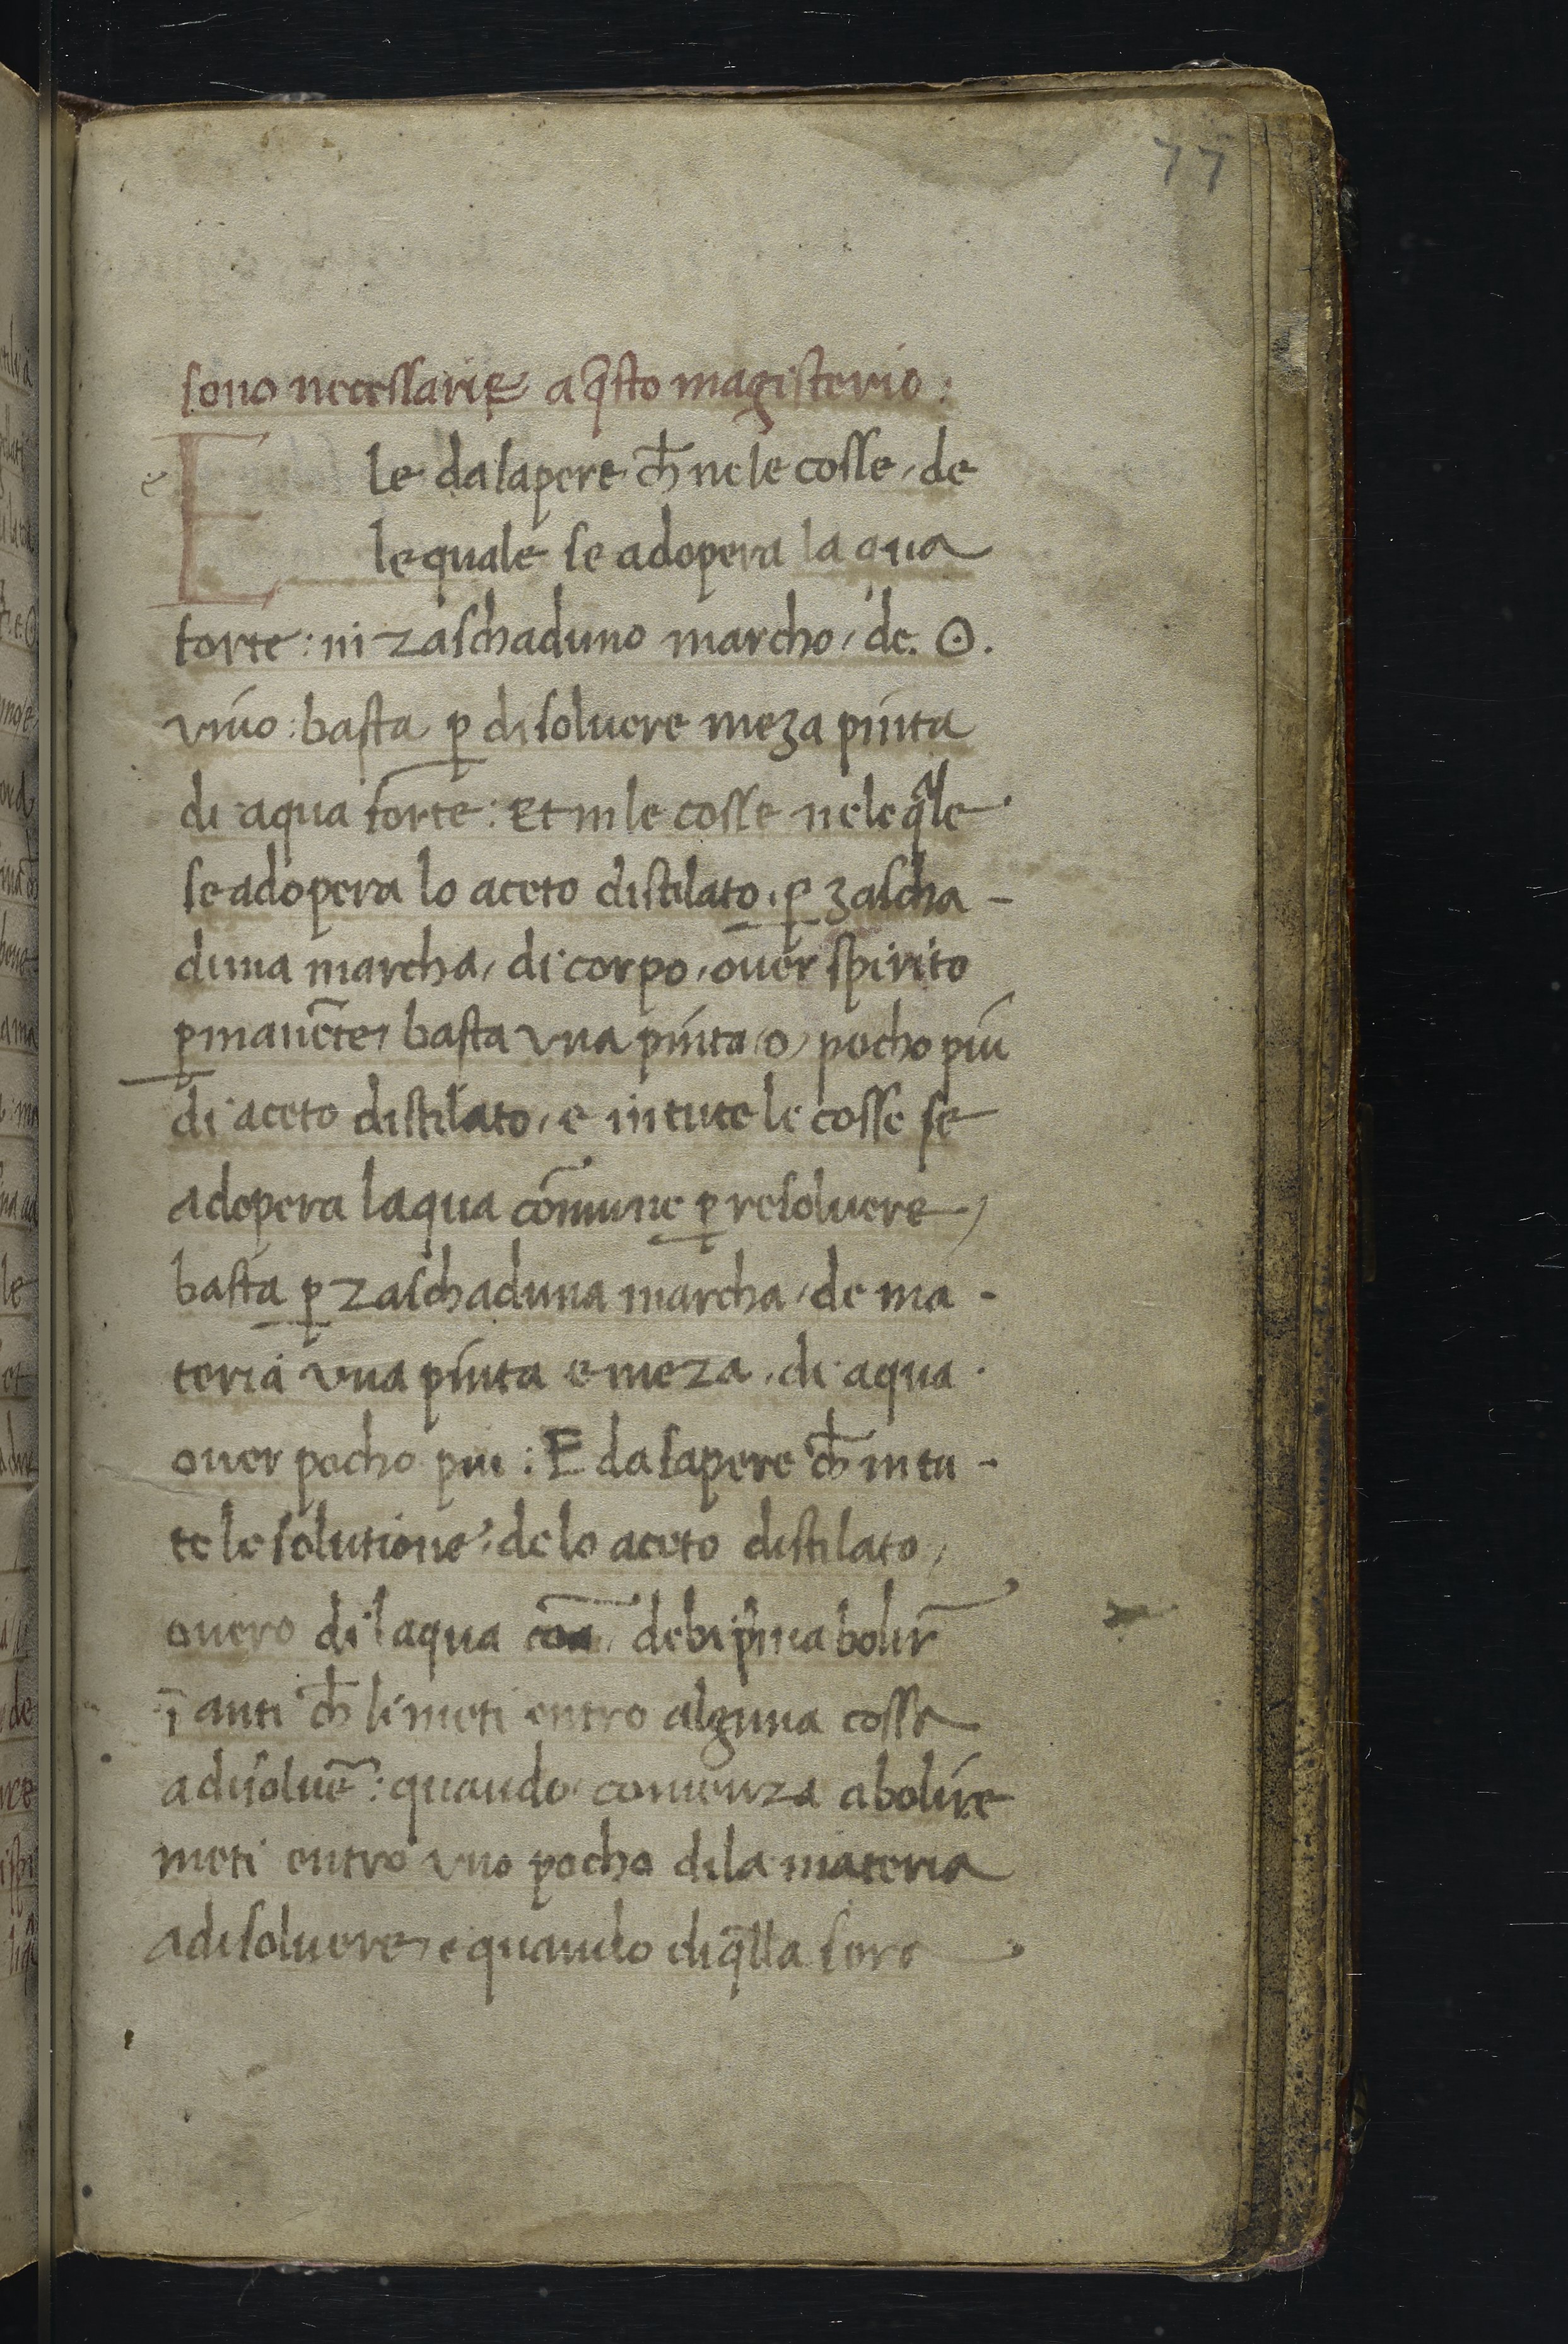 77
sono necessarie a q̃sto magisterio:
e
E le da sapere ch̃ ne le cosse, de
le quale se adopera laqua
forte: in zaschaduno marcho, de. ☉.
viuo: basta ꝑ disoluere meza pinta
di aqua forte: Et in le cosse nele q̃le
se adopera lo aceto distilato, ꝑ zascha-
duna marcha, di corpo, ouer spirito
ꝑmanẽte, basta vna pinta, o, pocho piu
di aceto distilato, e in tute le cosse se
adopera laqua cõmune ꝑ resoluere,
basta ꝑ zaschaduna marcha, de ma-
teria vna pinta e meza, di aqua.
ouer pocho piu: E da sapere ch̃ in tu-
te le solutione, de lo aceto distilato,
ouero di laqua cõa, debi p̃ma bolir̃
ĩ anti ch̃ li meti entro alguna cossa
a disoluẽ: quando comenza a bolire
meti entro vno pocho di la materia
a disoluere, e quando di q̃lla sera